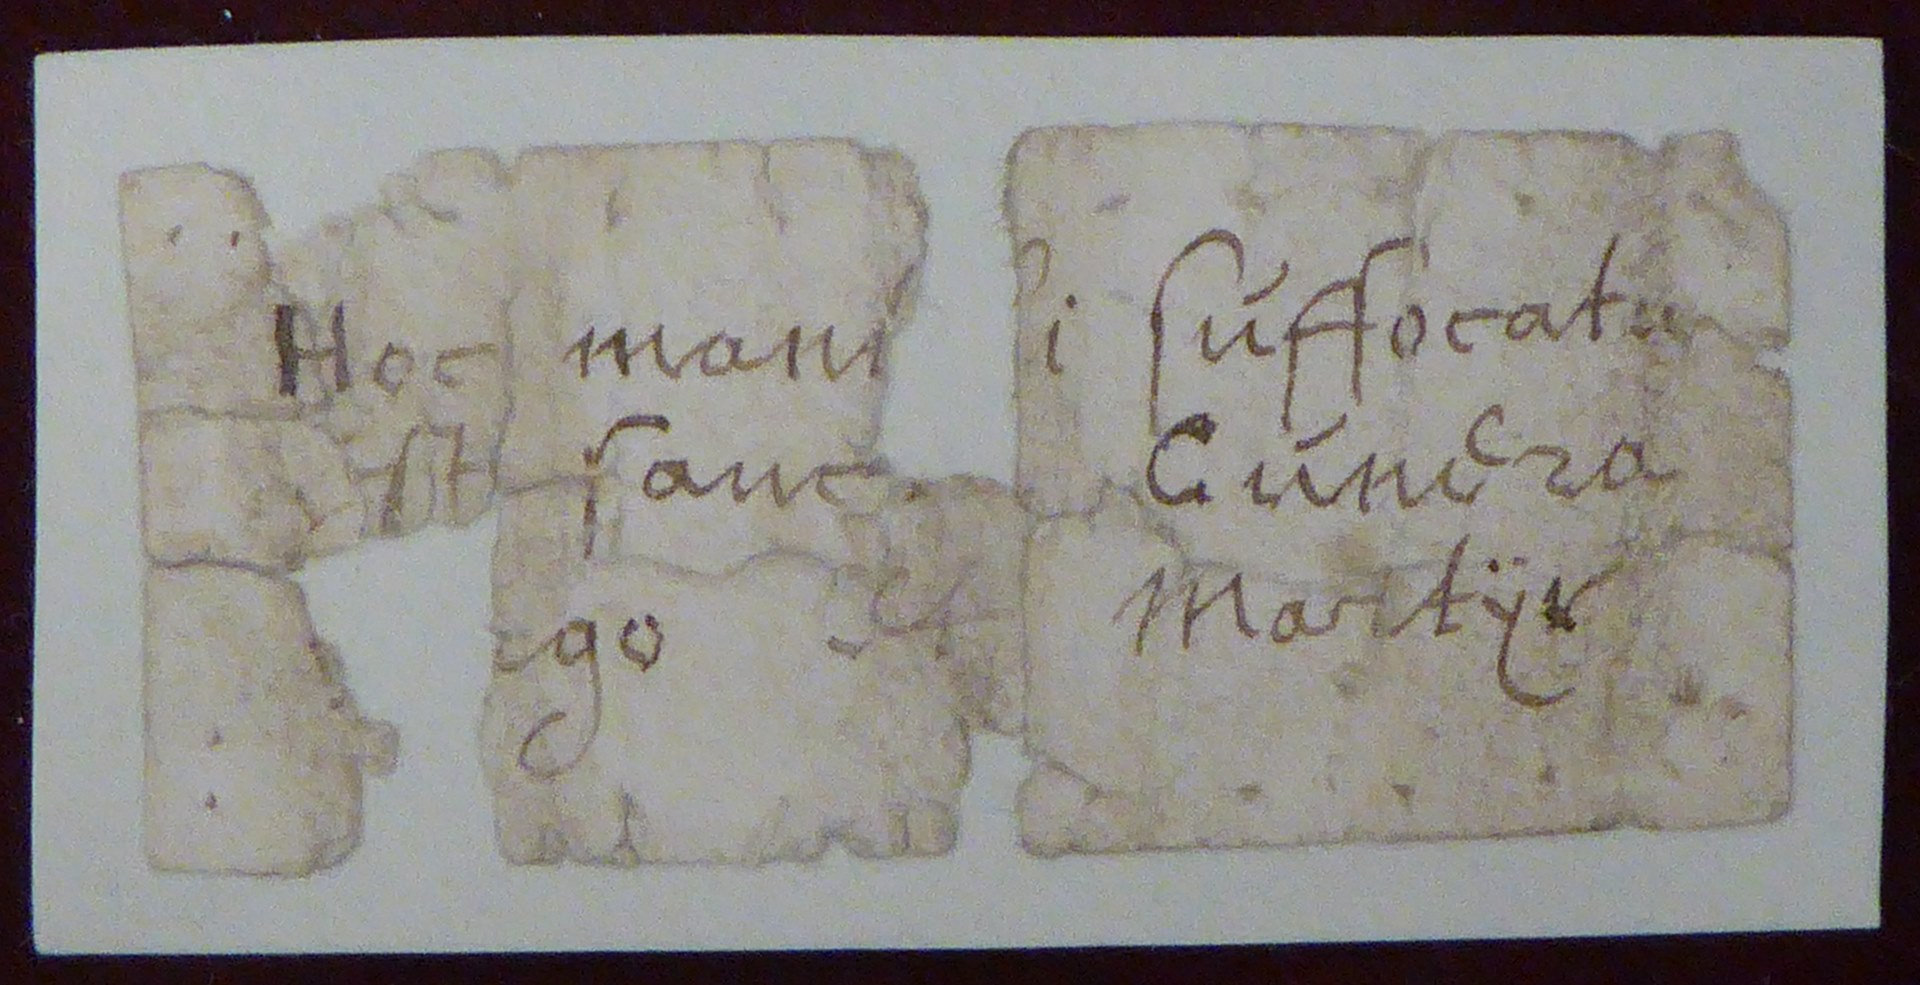 Hoc mani li suffocatu
st sanc. Cunera
go et Martÿr